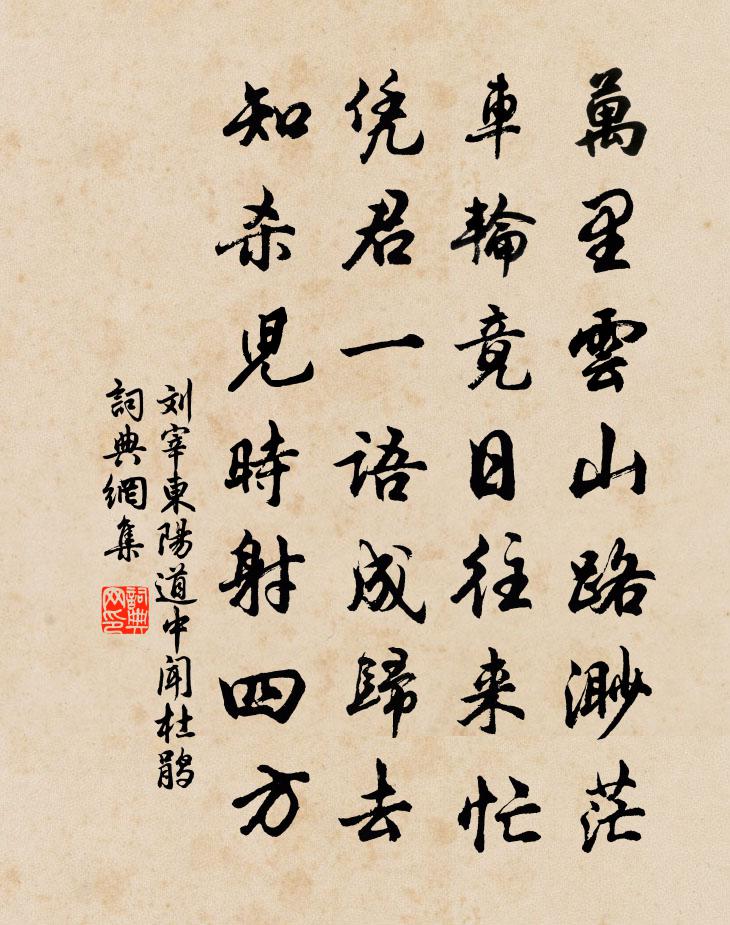 萬里雲山路渺茫
車輪竟日往来忙
凭君一語成歸去
知杀児時射四方
刘宰東陽道中闻杜鹃
詞典網集
詞典网印